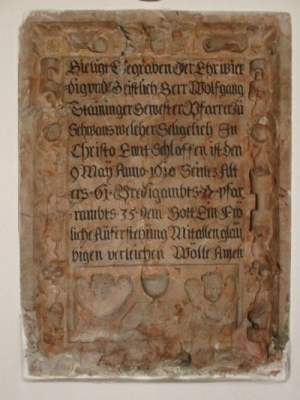 Hie ligt Begraben Der Ehrwier
dig vnd Geistlich Herr Wolfgang
Stäininger Gewester Pfarrer zu
Schwans welcher Seligelich In
Christo Entschlaffen ist den
9 May Anno 1630 Seines Alt
ers 61 Predigambts pfar
rambts 35 dem Gott Ein Frö
liche Auferstehung Mit allen glau
bigen verleichen Wölle Amen